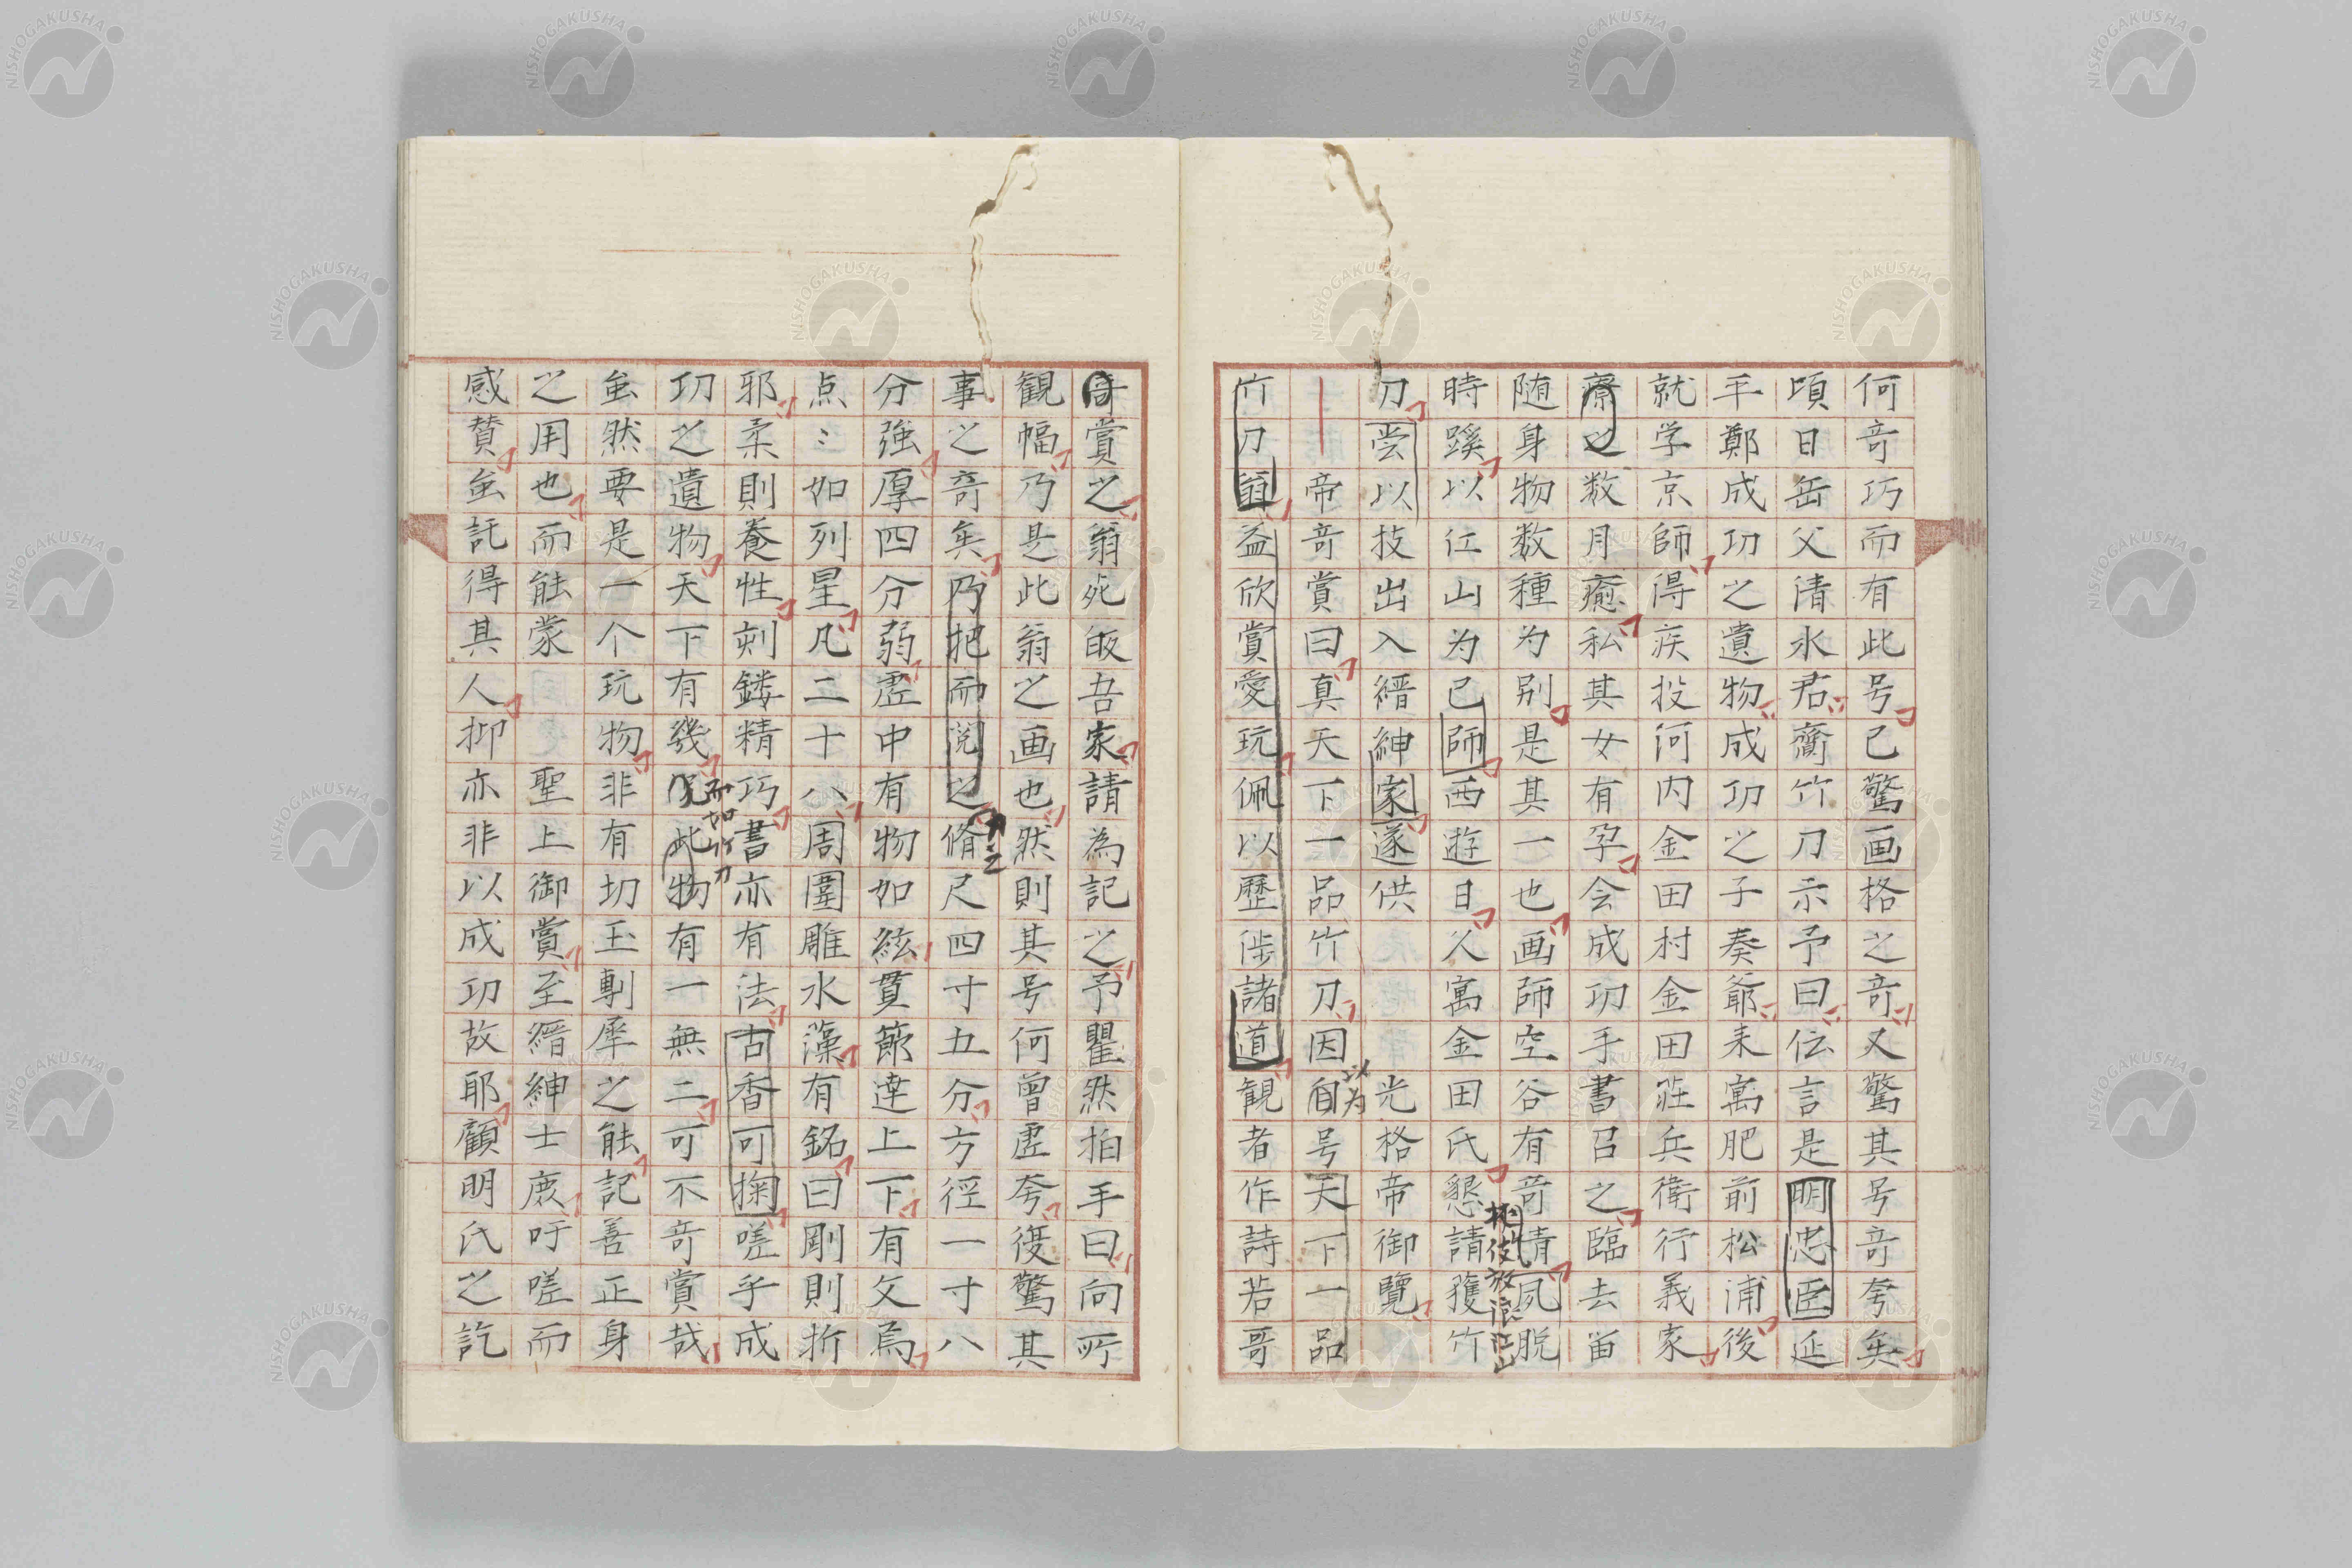 何奇巧而有此号已驚画格之奇又驚其号奇夸矣
頃日岳父清水君齎竹刀示予曰伝言是明忠臣延
平鄭成功之遺物成功之子奏爺来寓肥前松浦後
就学京師得疾投河内金田村金田荘兵衛行義家
療之数月癒私其女有孕会成功手書召之臨去留
随身物数種为别是其一也画師空谷有奇情夙脱
挾伎放浪江山
時蹊以江山为己師西遊日久寓金田氏懇請獲竹
刀嘗以技出入縉紳家遂供 光格帝御覽
帝奇賞曰真天下一品竹刀因自号天下一品
以为
竹刀翁益欣賞愛玩佩以歷渉諸道観者作詩若哥
奇賞之翁死皈吾家請為記之予瞿然拍手曰向所
観幅乃是此翁之画也然則其号何曾虚夸復驚其
事之奇矣乃把而説之脩尺四寸五分方径一寸八
分強厚四分弱虚中有物如絃貫節達上下有文焉
点〻如列星凡二十八周圍雕水藻有銘曰剛則折
邪柔則養性剣鏤精巧書亦有法古香可掬嗟乎成
而如竹刀
功之遺物天下有幾况此物有一無二可不奇賞哉
虽然要是一个玩物非有切玉剸犀之能記善正身
之用也而能蒙 聖上御賞至縉紳士庶吁嗟而
感賛虽託得其人抑亦非以成功故耶顧明氏之訖
NISHOGAKUSHA